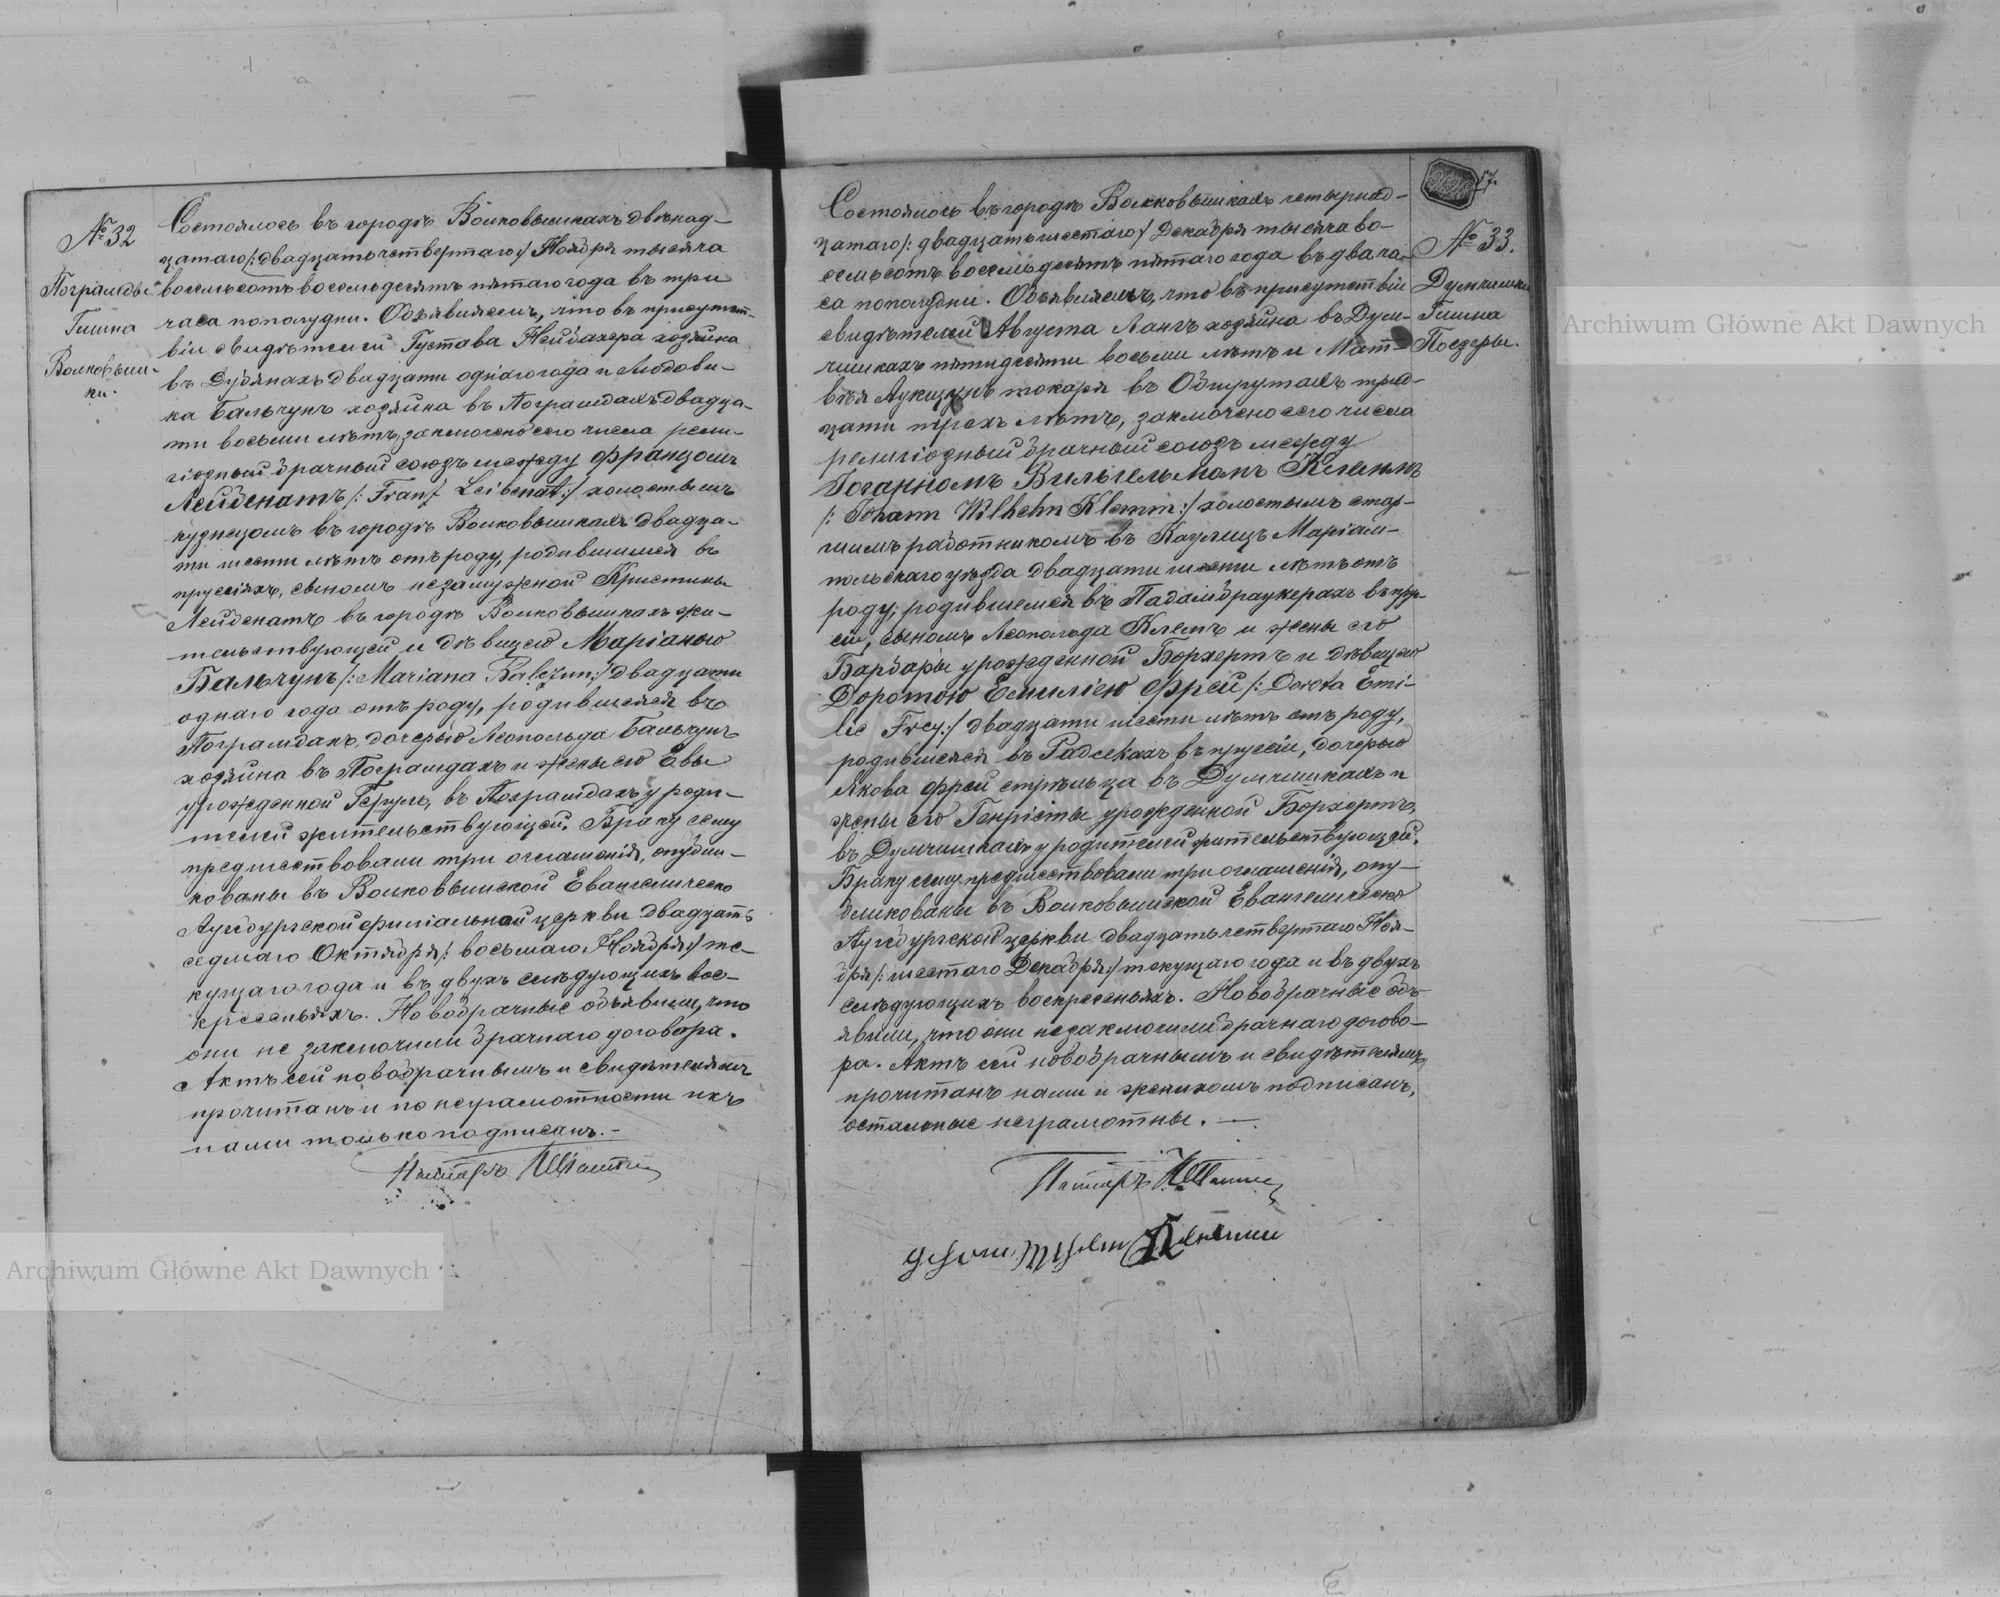 № 32
Пограмды
Гмина
Волковыш-
ки.
Состоялось въ городѣ Волковышкахъ двѣнад-
цатаго /: двадцать четвертаго :/ Ноября тысяча
восемьсотъ восемьдесятъ пятаго года въ три
часа пополудни. Объявляемъ, что въ присутст-
віи свидѣтелей Густава Нейбахера хозяина
въ Дубянахъ двадцати одного года и Людови-
ка Бальчунъ хозяина въ Пограмдахъ двадца-
ти восьми лѣтъ, заключенъ сего числа рели-
гіозный брачный союзъ между Францомъ
Лейбенатъ /: Franz Leibenat :/ холостымъ
кузнецомъ въ городѣ Волковышкахъ двадца-
ти шести лѣтъ отъ роду, родившимся въ
пруссіяхъ, сыномъ незамужной Кристины
Лейбенатъ въ городѣ Волковышкахъ жи-
тельствующей и дѣвицею Маріаною
Бальчунъ /: Mariana Balczun :/ двадцати
одного года отъ роду, родившеяся въ
Пограмдахъ, дочерью Леопольда Бальчунъ
хозяина въ Пограмдахъ и жены его Евы
урожденной Гегули, въ Пограмдахъ у роди-
телей жительствующей. Браку сему
предшествовали три оглашенія, опубли-
кованы въ Волковышской Евангелическо
Аугсбургской филіальной церкви двадцать
седьмаго Октября /: восьмаго Ноября :/ те-
кущаго года и въ двухъ слѣдующихъ вос-
кресеньяхъ. Новобрачные объявили, что
они не заключили брачнаго договора.
Актъ сей новобрачнымъ и свидѣтелямъ
прочитанъ и по неграмотности ихъ
нами только подписанъ.-
Пасторъ
Состоялось въ городѣ Волковышкахъ четырнад-
цатаго /: двадцать шестаго :/ Декабря тысяча во-
семьсотъ восемьдесятъ пятаго года въ два ча-
са пополудни. Объявляемъ, что въ присутствіи
свидѣтелей Августа Лангъ хозяина въ Дум-
чишкахъ пятидесяти восьми лѣтъ и Мат-
вѣя токаря въ Обшрутахъ трид-
цати трехъ лѣтъ, заключено сего числа
религіозный брачный союзъ между
Іоганномъ Вильгельмомъ Клеммъ
/: Johann Wilhelm Klemm :/ холостымъ стар-
шимъ работникомъ въ Маріам-
польскаго уѣзда двадцати шести лѣтъ отъ
роду, родившемся въ въ прус-
сіи, сыномъ Леопольда Клемъ и жены его
Барбары урожденной Борхертъ и дѣвицею
Доротою Емиліею Фрей /: Dorota Emi-
lie Frey :/ двадцати шести лѣтъ отъ роду,
родившеяся въ въ пруссіи, дочерью
Якова Фрей стрѣльца въ Думчишкахъ и
жены его Генріеты урожденной Борхертъ,
въ Думчишкахъ у родителей жительствующей.
Браку сему предшествовали три оглашенія, опу-
бликованы въ Волковышской Евангелическо
Аугсбургской церкви двадцать четвертаго Ноя-
бря /: шестаго Декабря :/ текущаго года и въ двухъ
слѣдующихъ воскресеньяхъ. Новобрачные объ-
явили, что они незаключили брачнаго догово-
ра. Актъ сей новобрачнымъ и свидѣтелямъ
прочитанъ нами и женихомъ подписанъ,
остальные неграмотны. —
Пасторъ
Johann Wilhelm Klemm
57.
№ 33.
Думчишки
Гмина
Поезеры.
Archiwum Główne Akt Dawnych
Archiwum Główne Akt Dawnych